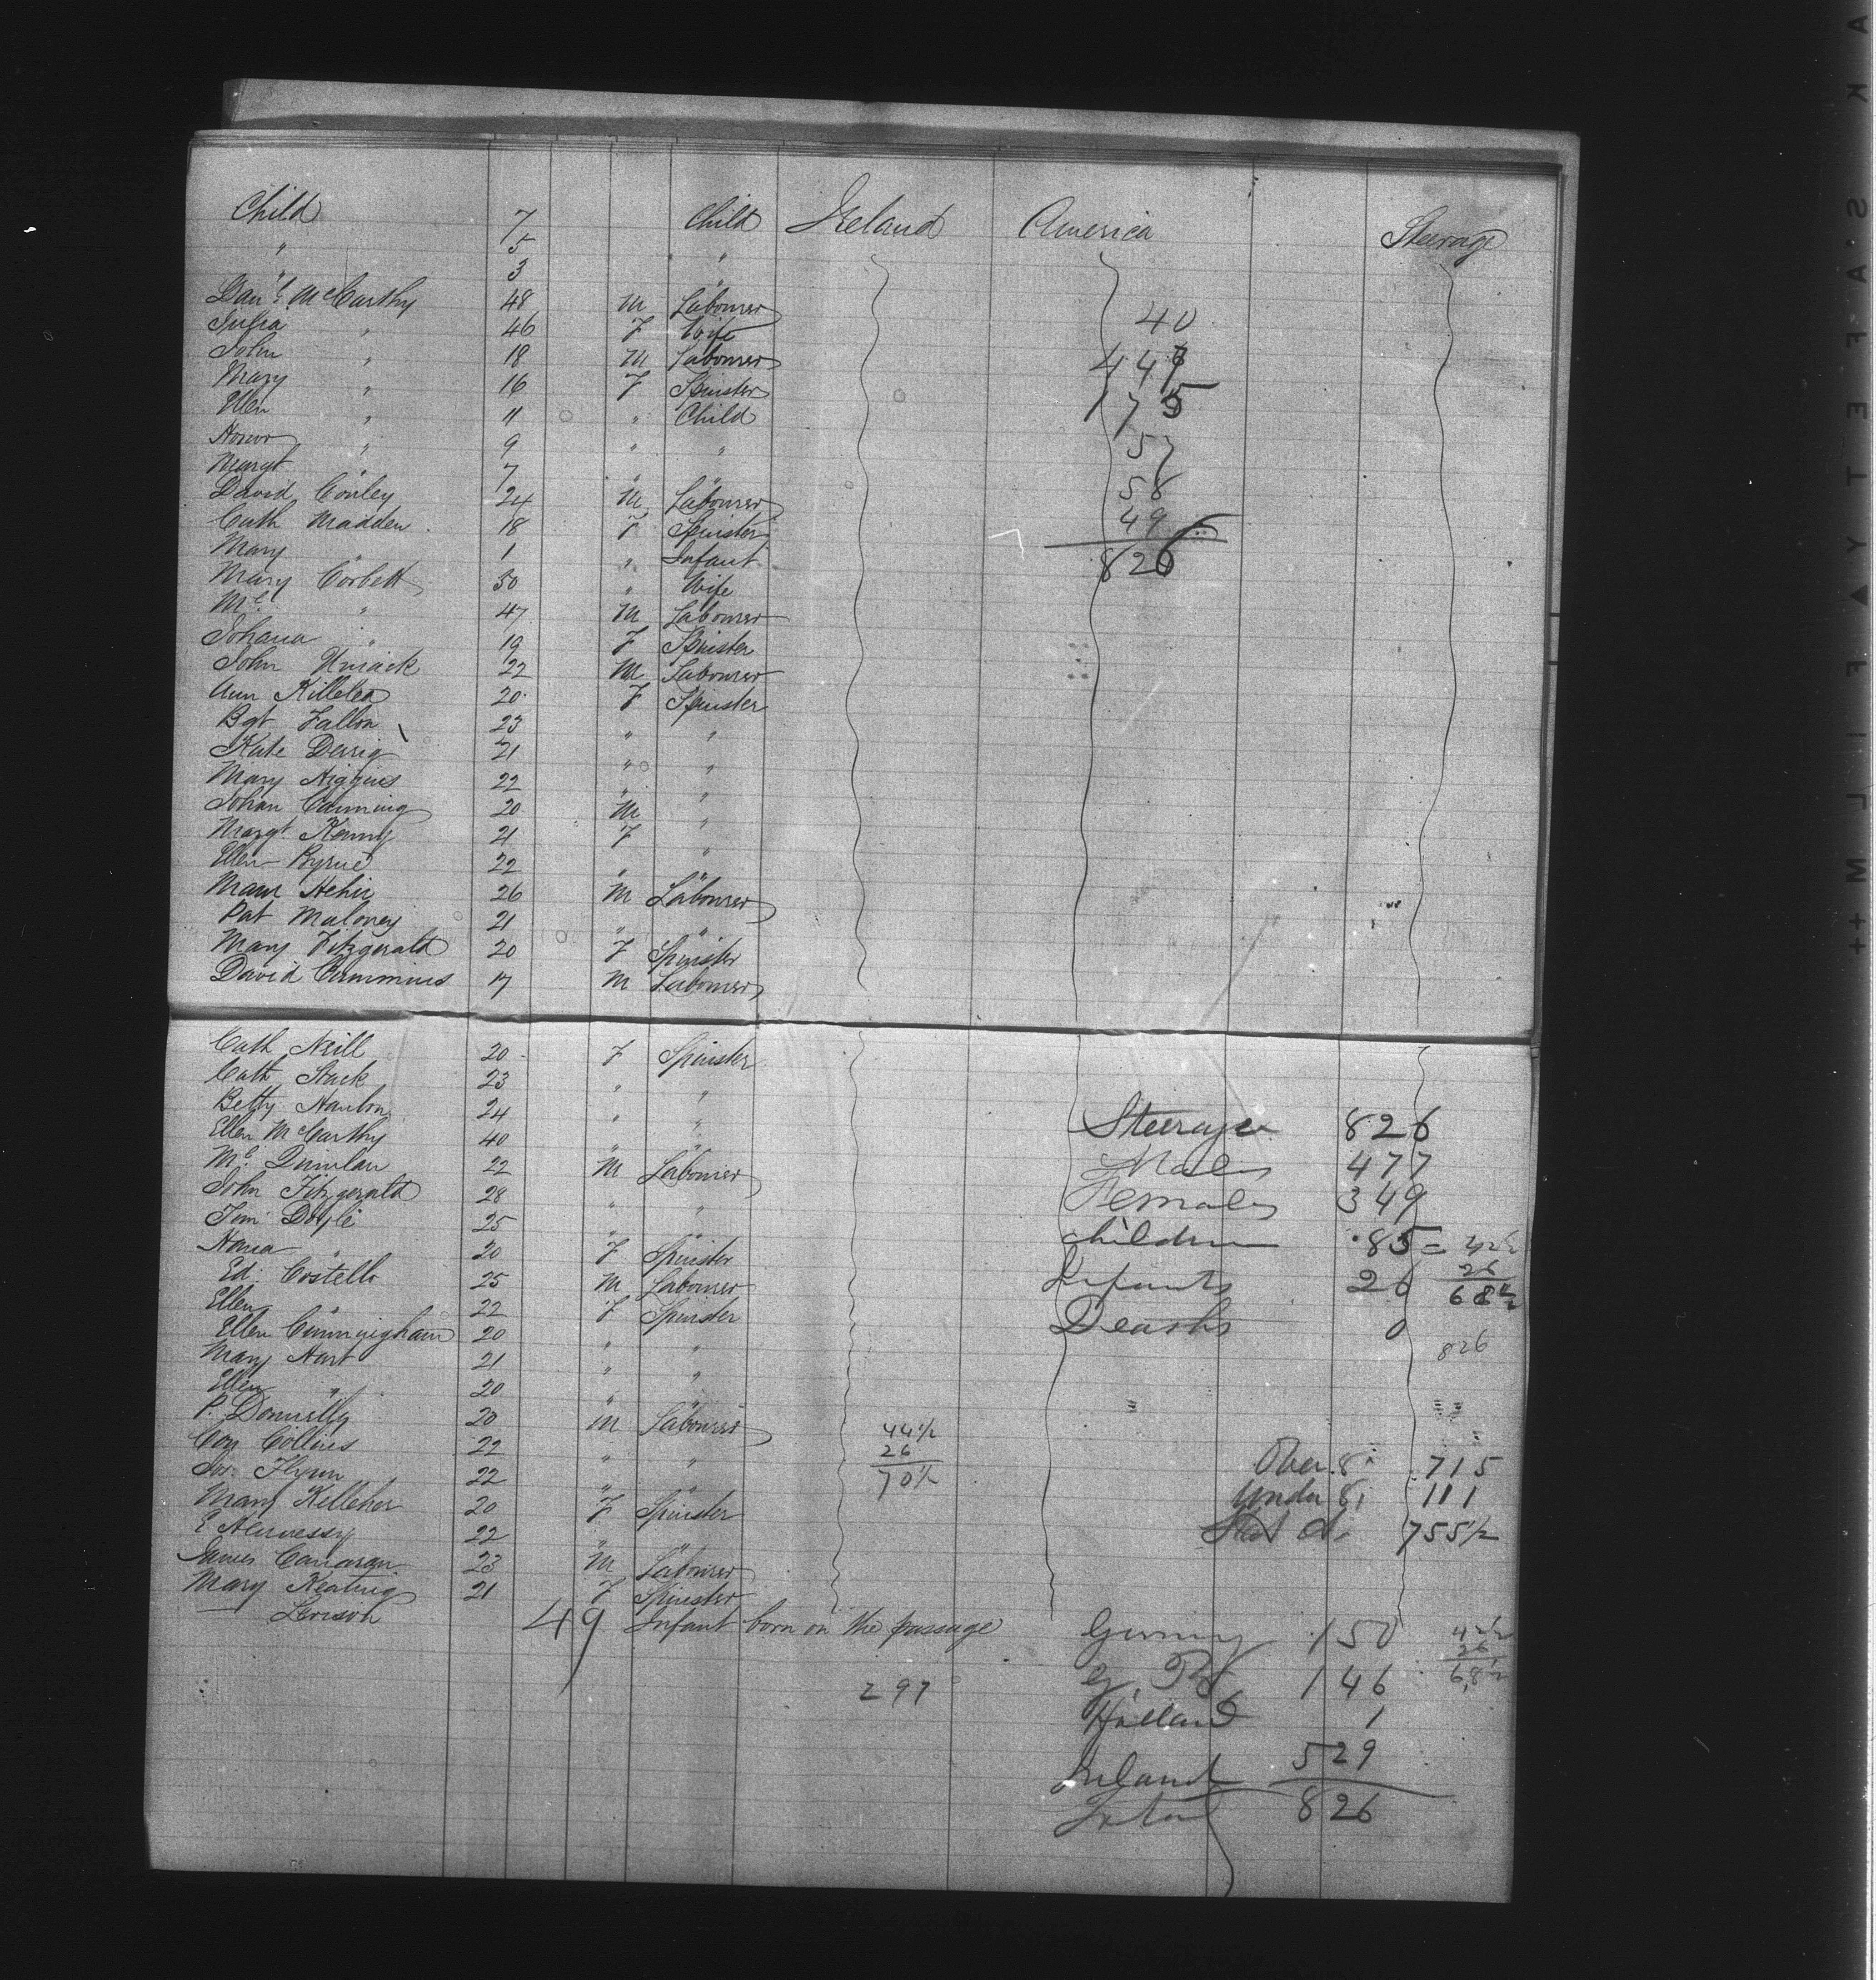 Child 7 Child Ireland America Steerage
" 5 "
" 3 "
Danl. McCarthy 48 M Labourer
Julia " 46 F Wife
John " 18 M Labourer
Mary " 16 F Spinster
Ellen " 11 " Child
Honor " 9 " "
Margt " 7 " "
David Conley 24 M Labourer
Cath Madden 18 F Spinster
Mary " 1 " Infant
Mary Corbett 50 " Wife
Ml. " 47 M Labourer
Johana " 19 F Spinster
John 22 M Labourer
Ann Killelea 20 F Spinster
Bgt Fallon 23 " "
Kate Derrig 21 " "
Mary Higgins 22 " "
Johan Canning 20 M "
Margt. Kenny 21 F "
Ellen Byrne 22 " "
Hehir 26 M Labourer
Pat Maloney 21 " "
Mary Fitzgerald 20 F Spinster
David Cummins 17 M Labourer
40
175
57
58
49
826
Cath Neill 20 F Spinster
Cath Stack 23 " "
Betty Hanlon 24 " "
Ellen McCarthy 40 " "
Ml. Quinlan 22 M Labourer
John Fitzgerald 28 " "
Jim Doyle 25 " "
Hana " 20 F Spinster
Ed. Costello 25 M Labourer
Ellen " 22 F Spinster
Ellen Cunnigham 20 " "
Mary Hart 21 " "
Ellen " 20 " "
P. Donnelly 20 M Labourer
Collins 22 " "
Flynn 22 " "
Mary Kelleher 20 F Spinster
E Hennessy 22 " "
James 23 M Labourer
Mary Keating 21 F Spinster
— Lewison 49 Infant born on the passage
Steerage 826
Males 477
Females 349
children 85 = 42½
Infants 26 26
68½
Deaths 0
826
44½
26
70½
Over 8 715
Under 8 111
755½
Germy 150
146
Holland 1
Ireland 529
Total 826
42½
26
68½
297